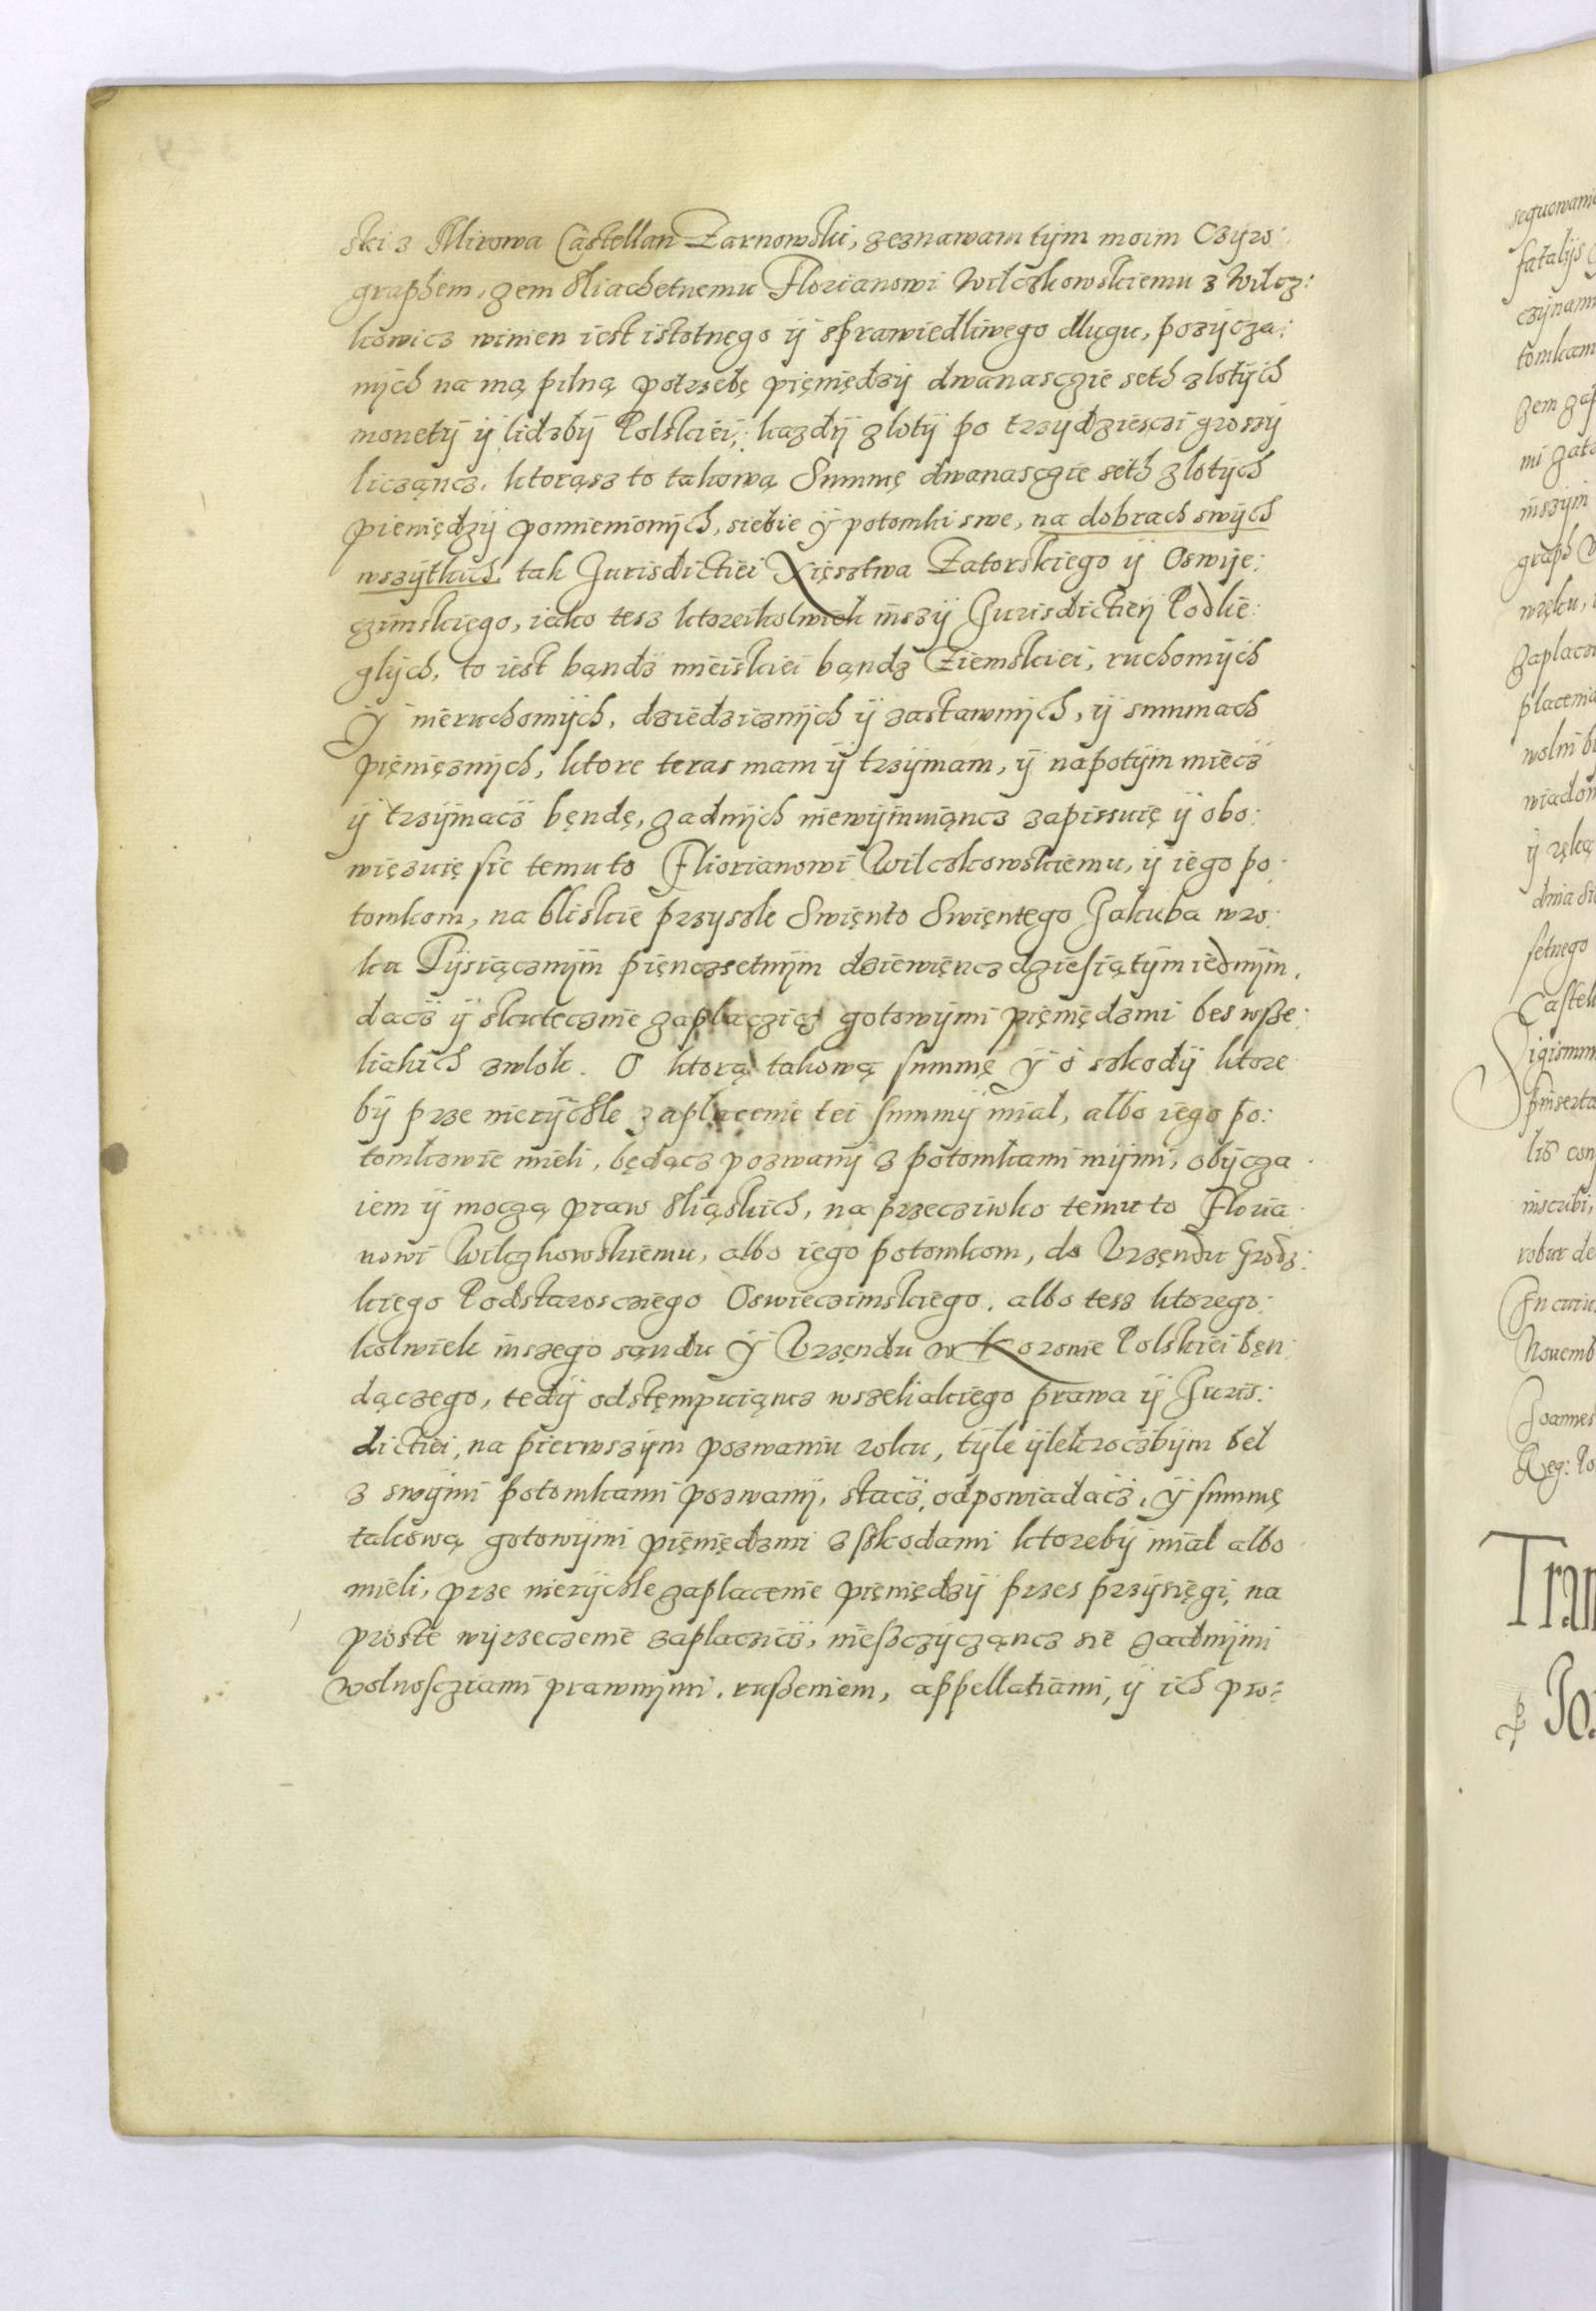 ski z Mirowa Castellan Zarnowski, zeznawam tÿm moim Czÿro:
graphem, zem Sliachetnemu Florianowi Wilczkowskiemu z Wilcz:
kowicz winien iest istotnęgo ÿ sprawiedliwego dlugu, pozÿcza:
nÿch na mą pilną potrzebę pięniędzÿ dwanasczie seth zlotÿch
monetÿ ÿ lidzbÿ Polskiei, kazdÿ zlotÿ po trzydziesczi groszÿ
licząncz. ktorąsz to takową Summę dwanasczie seth zlotÿch
pieniędzÿ pomienionÿch, siebie ÿ potomki swe, na dobrach swÿch
wszÿtkich, tak Jurisdictiei Xięsztwa Zatorskiego ÿ Oswie:
czimskięgo, iako tesz ktoreikolwiek inszÿ Jurisdictieÿ Podlie:
glÿch, to iest bąndz mieiskiei bąndz Ziemskiei, ruchomÿch
ÿ nieruchomÿch, dziedzicznÿch ÿ zastawnÿch, ÿ summach
pięnięznÿch, ktore teras mam ÿ trzÿmam, ÿ napotÿm miecz
ÿ trzÿmacz bęndę, zadnÿch niewÿimuiąncz zapissuię ÿ obo:
więzuię sie temu to Fliorianowi Wilczkowskiemu, ÿ iego po:
tomkom, na bliskie przyszle Swięnto Swięntego Jakuba wro:
ku Tÿsiącznÿm pięnczsetnÿm dziewięncz dziesiątÿm iednÿm.
dacz ÿ skutecznie zaplaczicz gotowÿmi pięniędzmi bes wsze:
liakich zwlok. O ktorą takową summę ÿ o szkodÿ ktore
bÿ prze nierÿchle zaplacenie tei summÿ mial, albo iego po:
tomkowie mieli, będącz pozwanÿ z potomkami mÿmi, obÿcza:
iem ÿ moczą praw Sląskich, na przecziwko temu to Floria:
nowi Wilczkowskiemu, albo iego potomkom, do Vrzęndu Grodz:
kiego Podstarosczięgo Oswieczimskiego. albo tesz ktorego:
kolwiek inszego sąndu ÿ Vrzęndu w Koronie Polskiei bęn:
dączego, tedÿ odstęmpuiąncz wszeliakiego prawa ÿ Juris:
dictiei, na pierwszÿm pozwaniu roku, tÿle ÿlekroczbÿm bel
z swÿmi potomkami pozwanÿ, stacz, odpowiadacz, ÿ summę
takową gotowÿmi pięniędzmi z szkodami ktorebÿ mial albo
mieli, prze nierÿchle zaplacenie pięniędzÿ przes przÿsięgi, na
proste wÿrzeczenie zaplaczicz, nieszczÿcząncz sie zadnÿmi
wolnoscziami prawnÿmi, ruszeniem, appellatiami, ÿ ich pro: